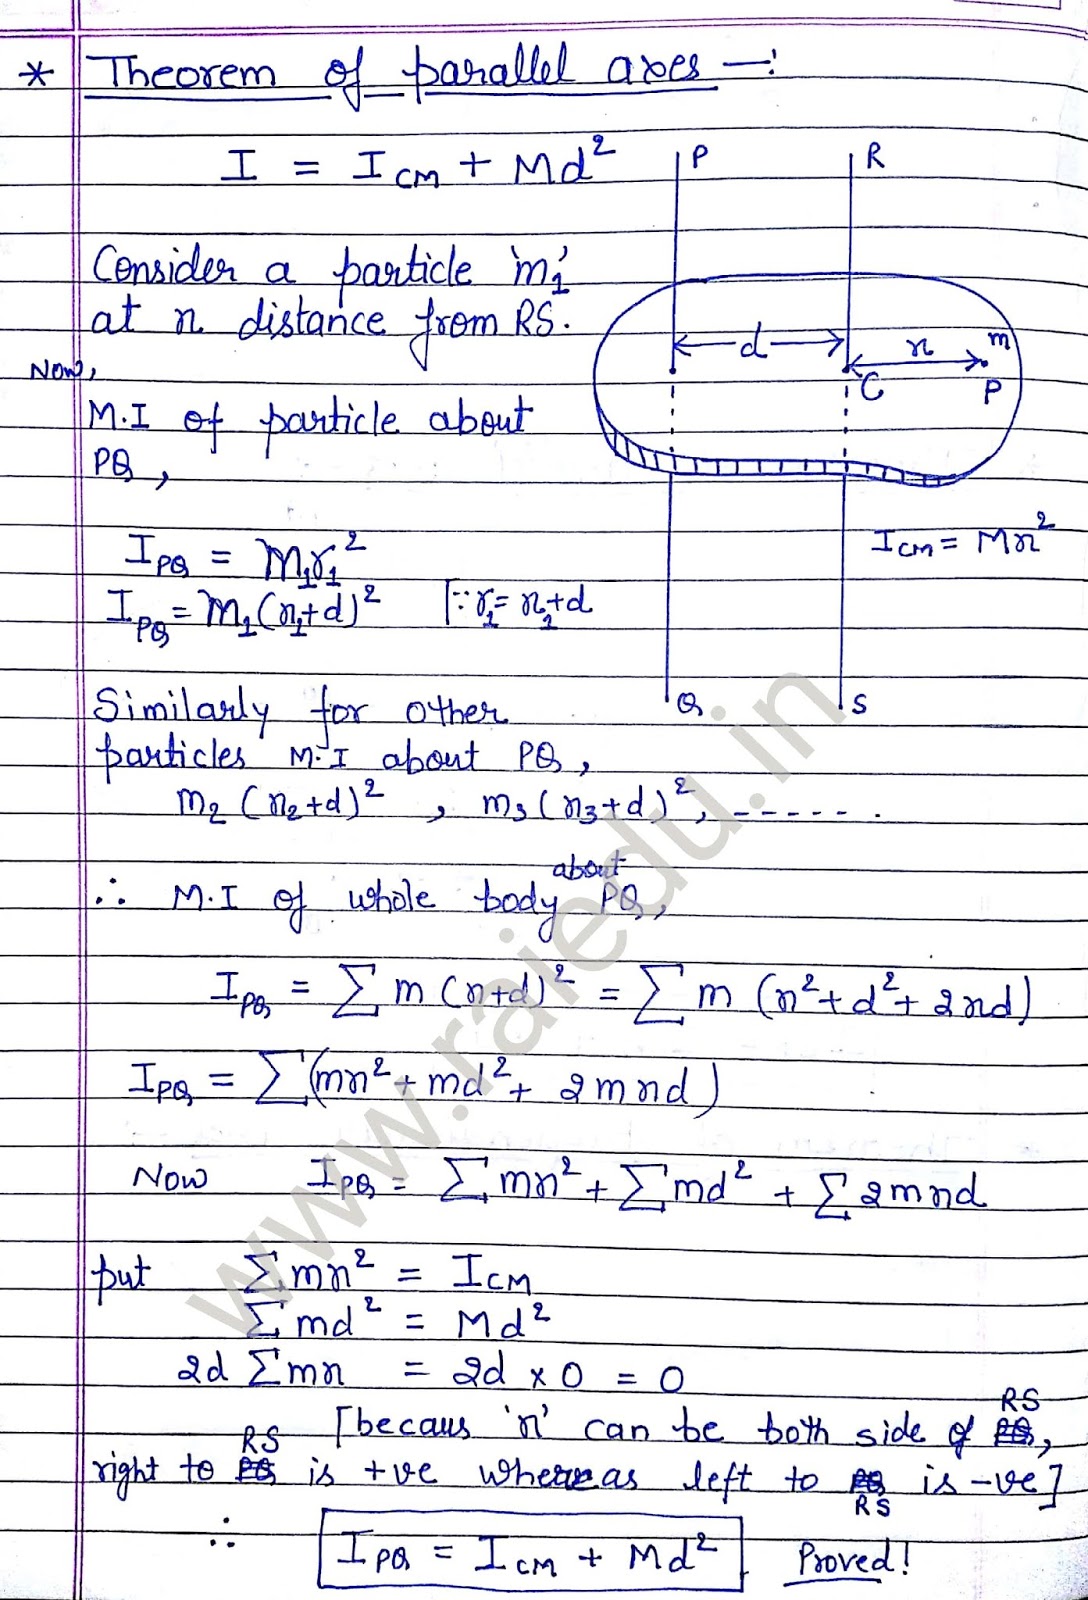 * Theorem of parallel axes —:
I = I_CM + Md²
P R
Consider a particle 'm₁'
at x distance from RS.
d x m
C P
Now,
M.I of particle about
PQ,
I_CM = Mx²
I_PQ = m₁r₁²
I_PQ = m₁(x₁+d)² [∵ r₁ = x₁+d
Q S
Similarly for other
particles M.I about PQ,
m₂(x₂+d)², m₃(x₃+d)², ------.
∴ M.I of whole body about PQ,
I_PQ = ∑m(x+d)² = ∑m(x²+d²+2xd)
I_PQ = ∑(mx²+md²+2mxd)
Now I_PQ = ∑mx² + ∑md² + ∑2mxd
put ∑mx² = I_CM
∑md² = Md²
2d ∑mx = 2d × 0 = 0
[becaus 'x' can be both side of RS,
right to RS is +ve whereas left to RS is -ve]
∴ I_PQ = I_CM + Md² Proved!
www.raiedu.in